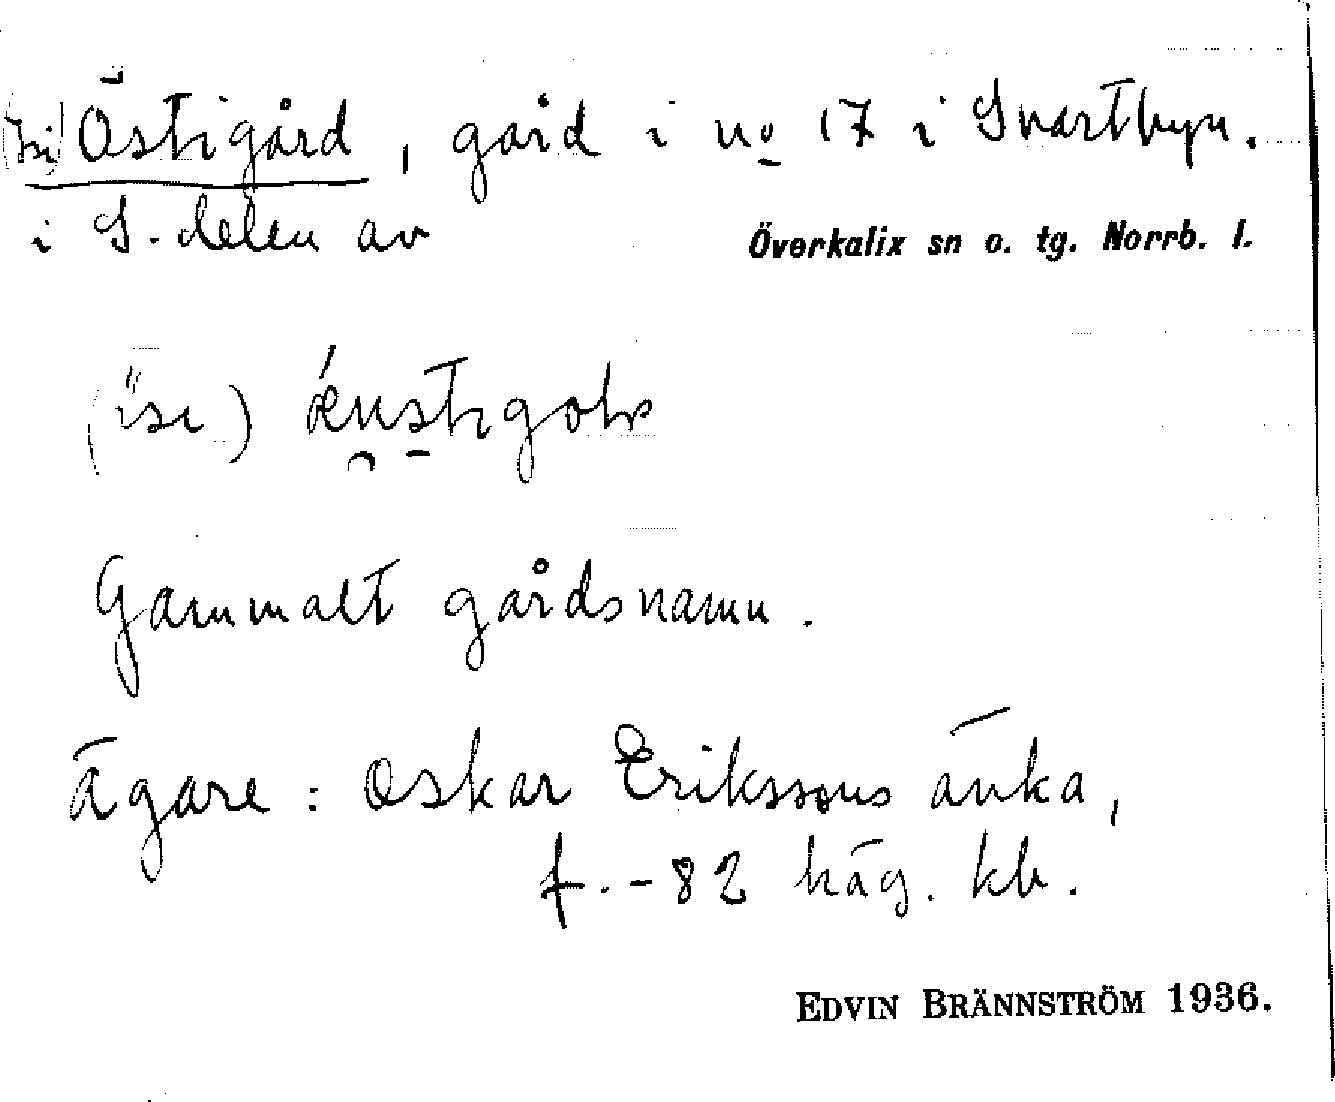 (hi) Östigård, gård i no 17 i Svartbyn.
i S. delen av
Överkalix sn o. tg. Norrb. l.
(isi)
Gammalt gårdsnamn.
ägare: Oskar Erikssons änka,
f. -82 häg. kb.
EDVIN BRÄNNSTRÖM 1936.